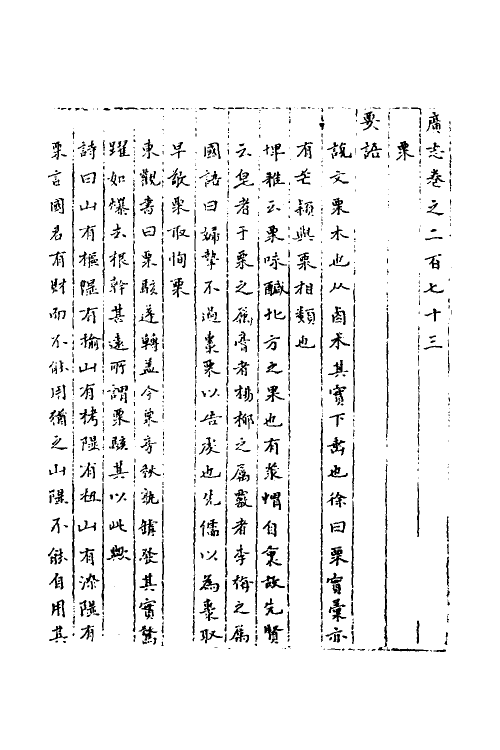 廣志卷之二百七十三
栗
要語
說文栗木也从卤木其實下垂也徐曰栗實彙亦
有芒穎與栗相類也
埤雅云栗味鹹北方之果也有莍蝟自裹故先賢
云皂者于栗之屬膏者楊柳之屬覈者李梅之屬
國語曰婦摯不過棗栗以告虔也先儒以為棗取
早敬栗取恂栗
東觀書曰栗駭蓬轉蓋今栗房秋熟罅發其實驚
躍如爆去根幹甚遠所謂栗駭其以此歟
詩曰山有樞隰有榆山有栲隰有杻山有漆隰有
栗言國君有財而不能用猶之山隰不能自用其